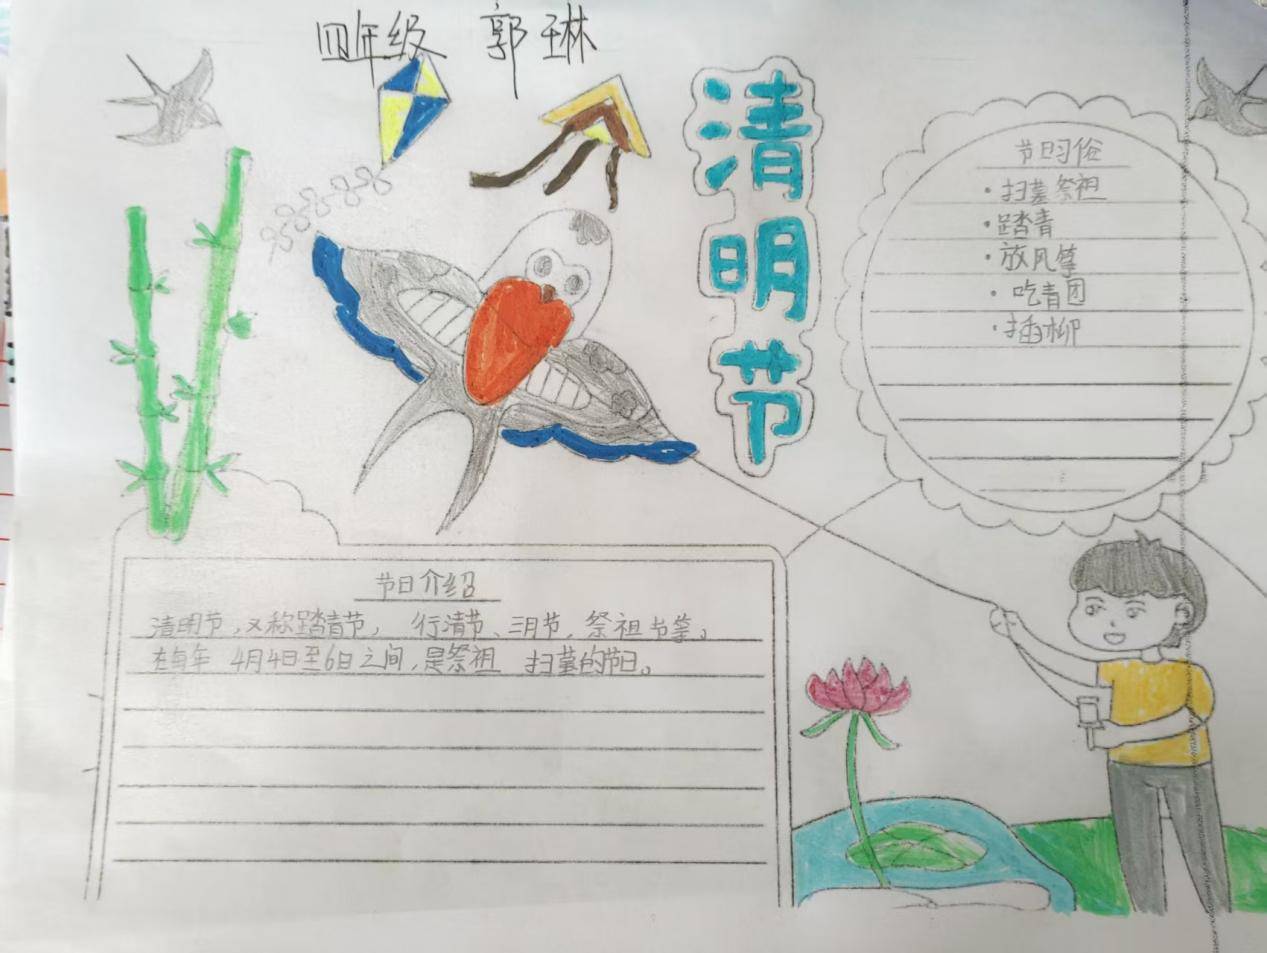 四年级 郭玉琳
清明节
节日习俗
·扫墓祭祖
·踏青
·放风筝
·吃青团
·插柳
节日介绍
清明节,又称踏青节, 行清节、三月节,祭祖节等。
在每年 4月4日至6日之间,是祭祖 扫墓的节日。